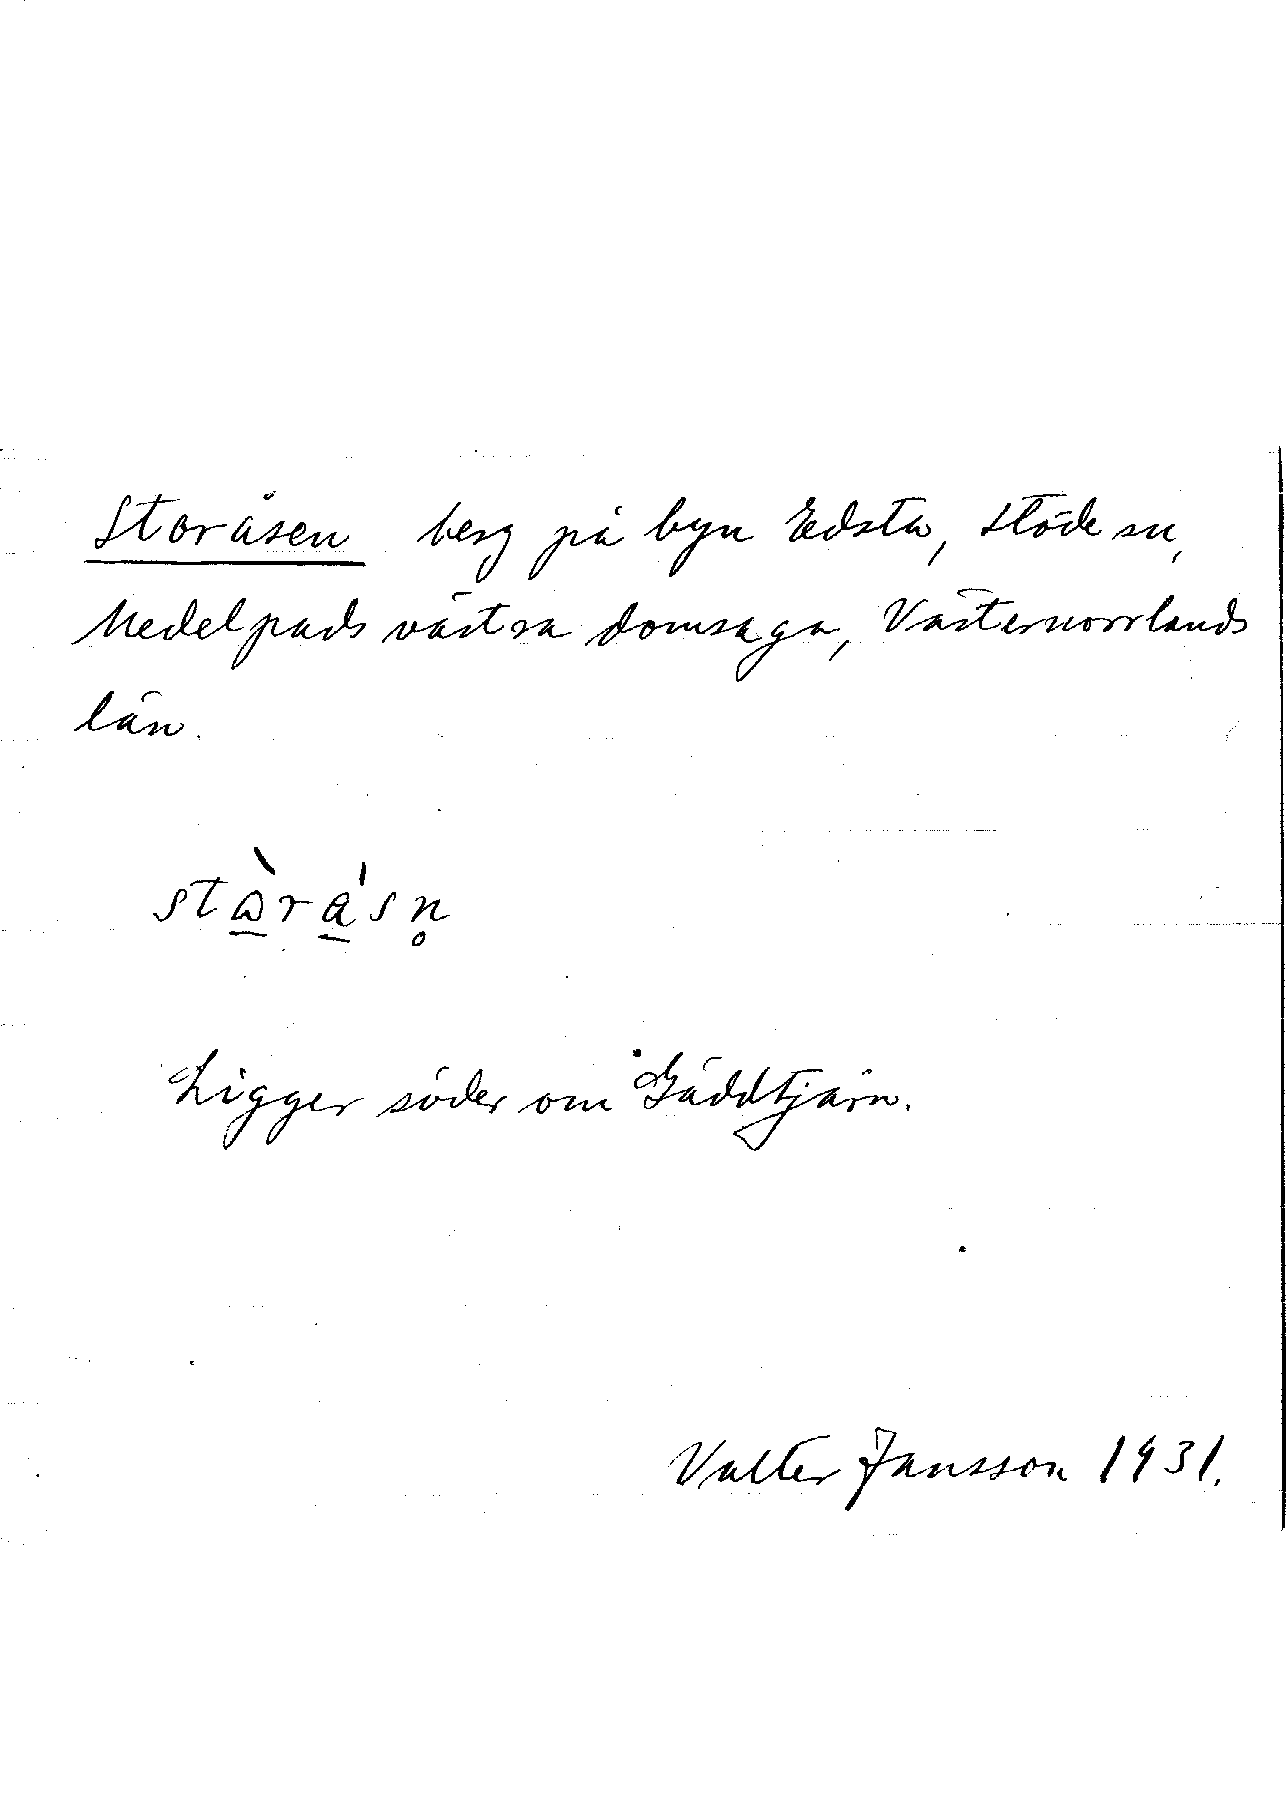 Storåsen berg på byn Edsta, Stöde sn,
Medelpads västra domsaga, Västernorrlands
län.
stὰ̱rá̱sn̥
Ligger söder om Gäddtjärn.
Valter Jansson 1931.